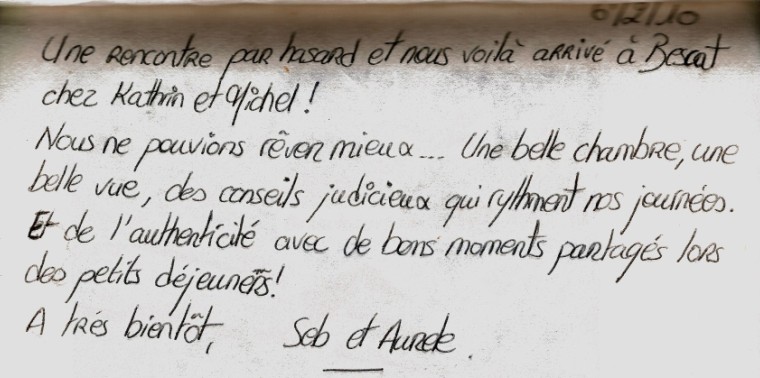 6/2/10
Une rencontre par hasard et nous voilà arrivé à Bescat
chez Kathrin et Michel !
Nous ne pouvions rêver mieux... Une belle chambre, une
belle vue, des conseils judicieux qui rythment nos journées.
Et de l'authenticité avec de bons moments partagés lors
des petits déjeuners!
A très bientôt, Seb et Aurele.